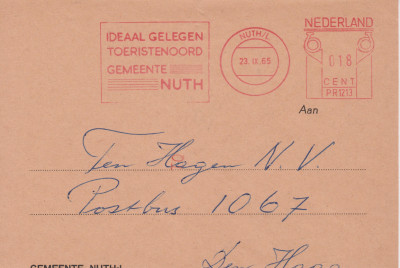 IDEAAL GELEGEN
TOERISTENOORD
GEMEENTE
NUTH
NUTH/L.
23. IX. 65
NEDERLAND
018
CENT
PR1213
Aan
Ten Hagen N.V.
Postbus 1067
Den Haag
GEMEENTE NUTH-L